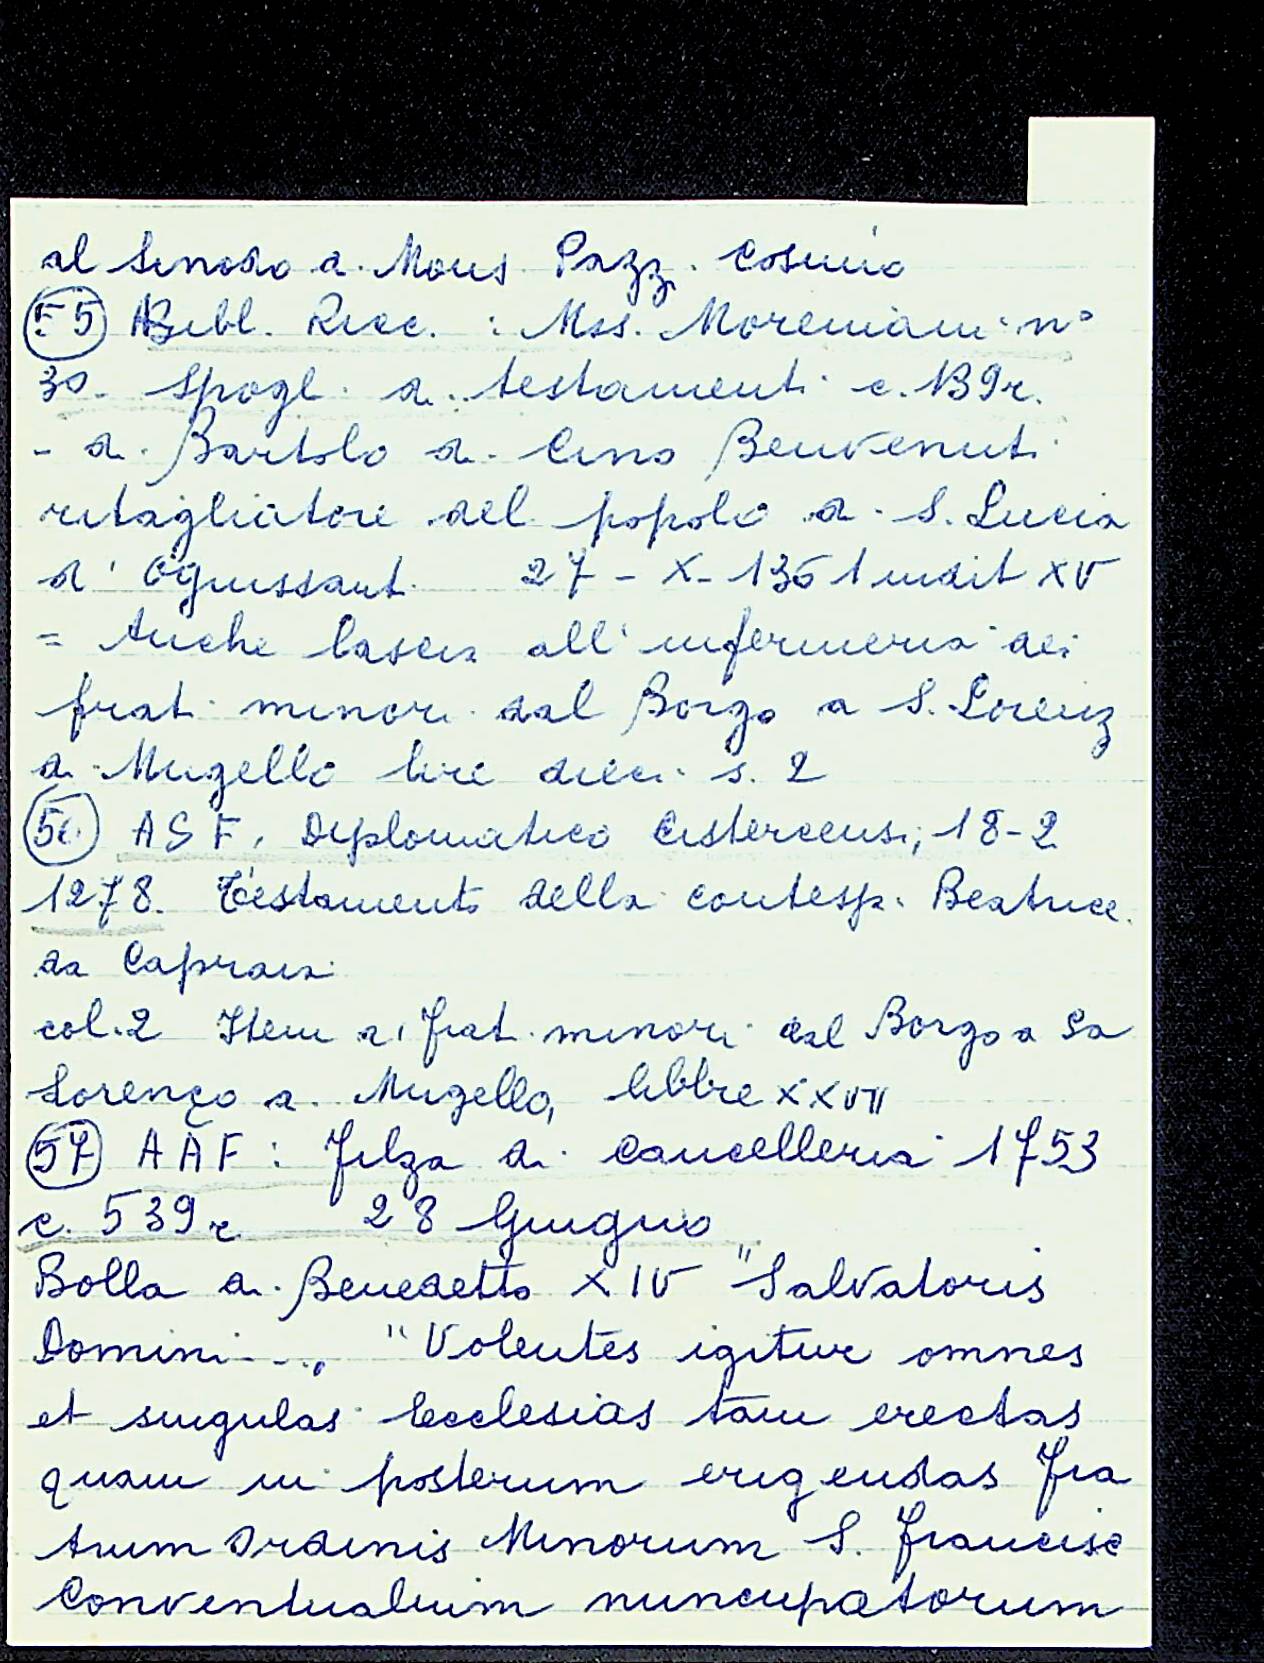 al Sinodo di Mons Pazzi Cosimo
(55) Bibl. Ricc. : Mss. Moreniani n°
30. Spogli di testamenti c. 139r.
- di Bartolo di Cino Benvenuti
ritagliatore del popolo di S. Lucia
d'Ognissanti 27-X-1361 indit XV
= Anche lascia all'infermeria dei
frati minori dal Borgo a S. Lorenz
di Mugello lire dieci s. 2
(56) ASF, Diplomatico Cistercensi, 18-2
1278. Testamento della contessa Beatrice
da Capraia
col. 2 Item ai frati minori dal Borgo a Sa
Lorenço di Mugello, libbre XXVII
(57) AAF : Filza di cancelleria 1753
c. 539r 28 Giugno
Bolla di Benedetto XIV "Salvatoris
Domini..., "Volentes igitur omnes
et singulas Ecclesias tam erectas
quam in posterum erigendas Fra
trum Ordinis Minorum S. Francisc
Conventualium nuncupatorum